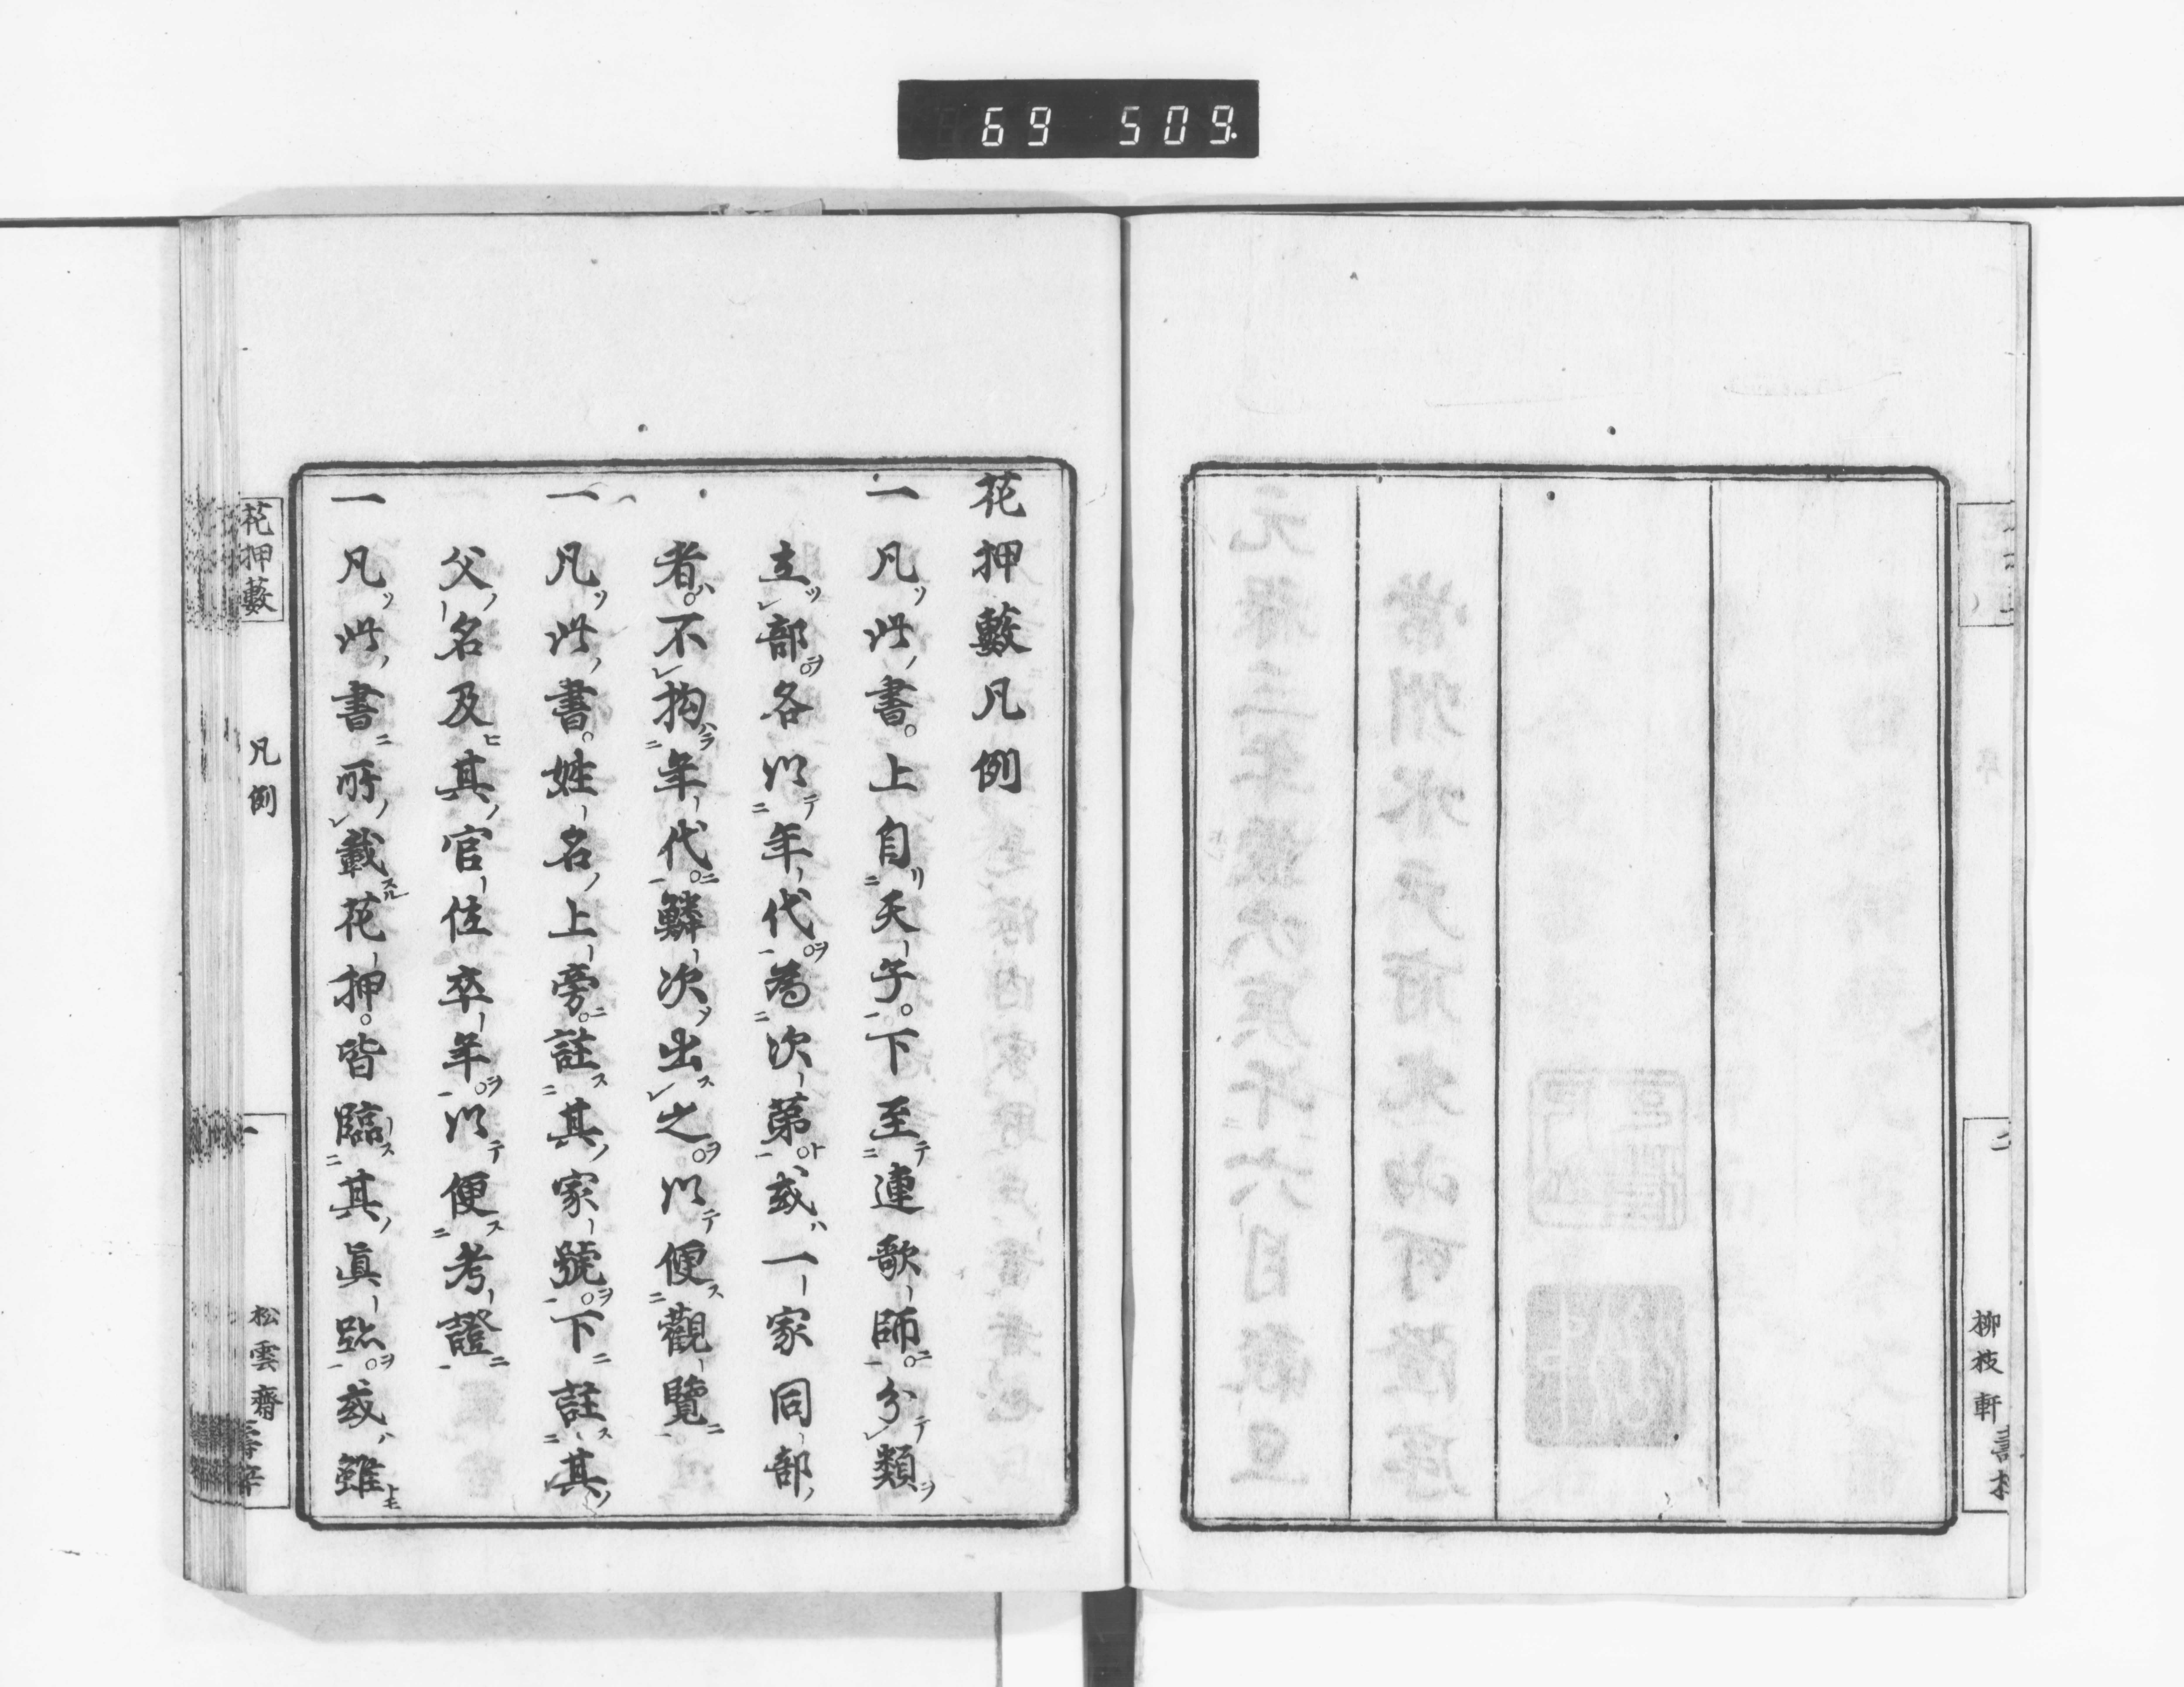 69 509.
二
柳枝軒
花押藪凡例
一凡ソ此ノ書。上自リ二天-子一。下至テ二連歌-師ニ一。分テレ類ヲ
立ツレ部ヲ。各以テ二年-代ヲ一。為二次-第ト一。或ハ一-家同-部ノ
者ハ。不レ拘ラ二年-代ニ一。鱗-次ノ出スレ之ヲ。以テ便ス二觀-覽ニ一
一凡ソ此ノ書。姓-名ノ上-旁ニ。註ス二其ノ家-號ヲ一。下ニ註ス二其ノ
父ノ-名及ヒ其ノ官-位卒-年ヲ一。以テ便ス二考-證ニ一
一凡ソ此ノ書ニ所ノレ載スル花-押。皆臨-ス二其ノ眞-跡ヲ一。或ハ雖トモ
花押藪
凡例
一
松雲齋